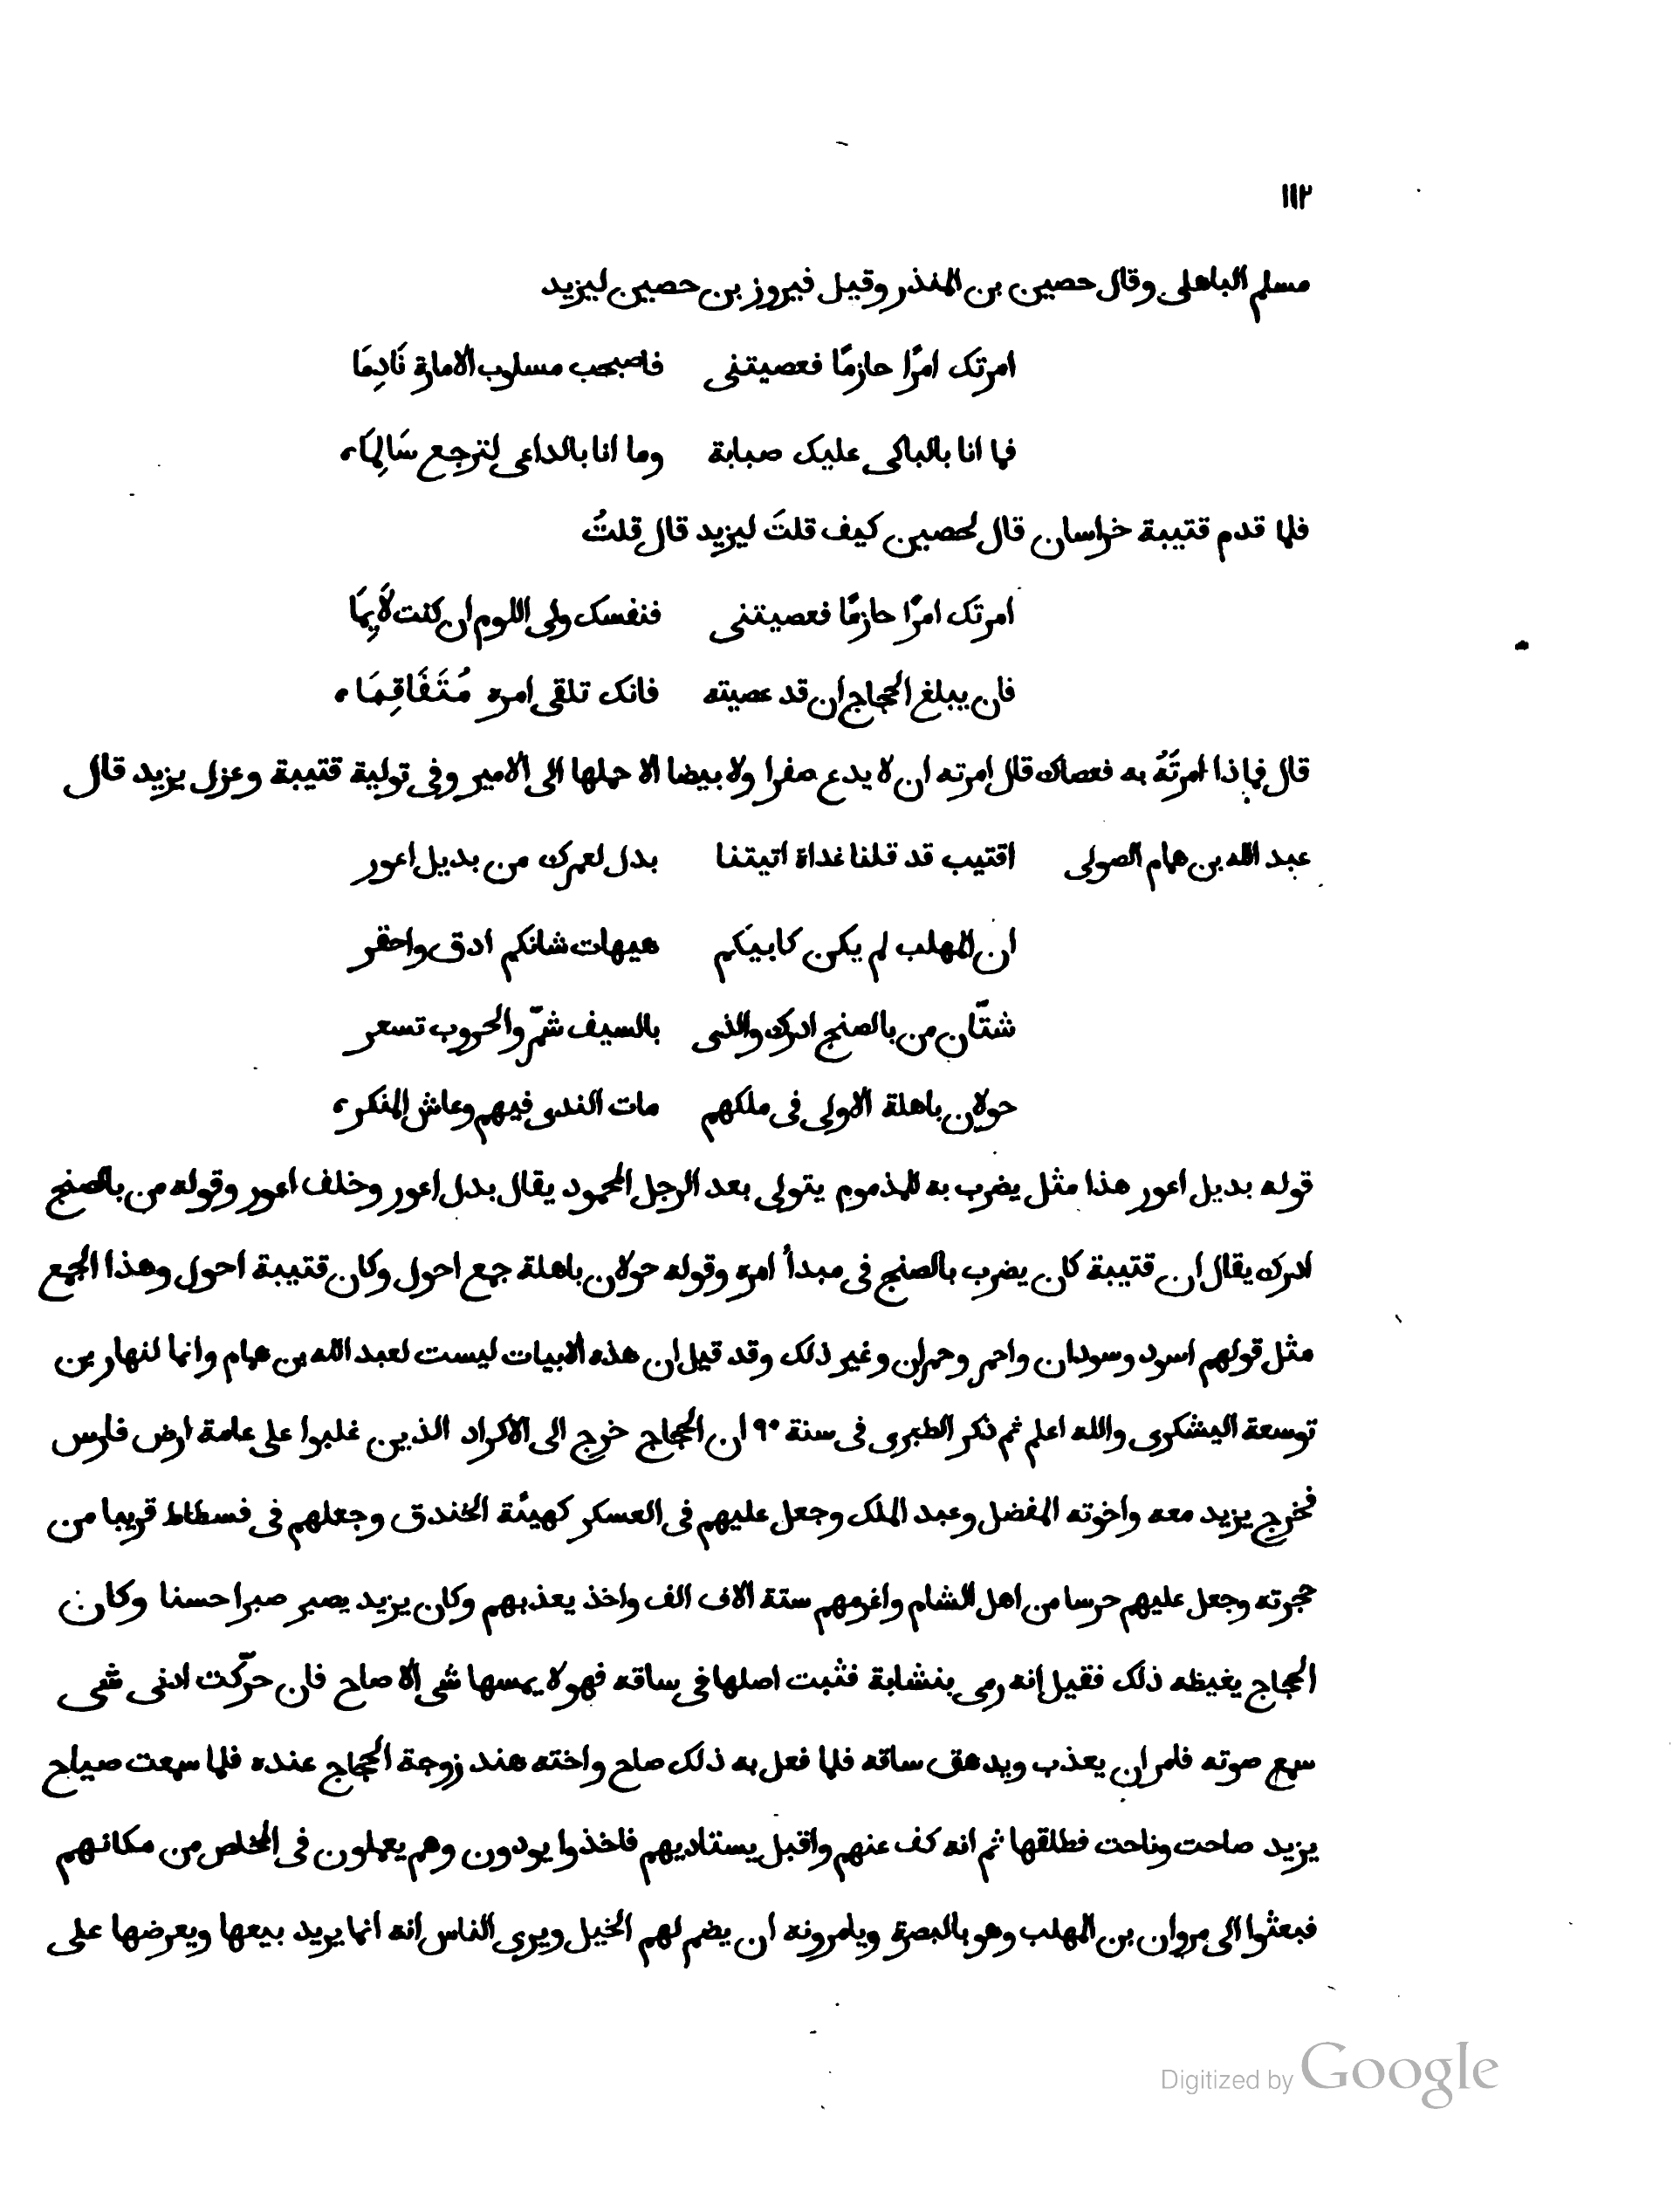 ١١٢
مسلم الباهلى وقال حصين بن المنذر وقيل فيروز بن حصين ليزيد
امرتك امرًا حازمًا فعصيتنى فاصبحب مسلوب الامارة نَادِمَا
فما انا بالباكى عليك صبابة وما انا بالداعى لترجع سَالِمَا
فلما قدم قتيبة خراسان قال لحصين كيف قلتَ ليزيد قال قلتُ
امرتك امرًا حازمًا فعصيتنى فنفسك ولى اللوم ان كنت لَايِمَا
فان يبلغ الحجاج ان قد عصيته فانك تلقى امره مُتَفَاقِمَا
قال فماذا امرتَهُ به فعصاك قال امرته ان لا يدع صفرا ولا بيضا الا حملها الى الامير وفى تولية قتيبة وعزل يزيد قال
عبد الله بن همام الصولى اقتيب قد قلنا غداة اتيتنا بدل لعمرك من بديل اعور
ان المهلب لم يكن كابيكم هيهات شانكم ادق واحقر
شتّان من بالصنج ادرك والذى بالسيف شمّر والحروب تسعر
حولان باهلة الاولى فى ملكهم مات الندى فيهم وعاش المنكر
قوله بديل اعور هذا مثل يضرب به للمذموم يتولى بعد الرجل المحمود يقال بدل اعور وخلف اعور وقوله من بالصنج
ادرك يقال ان قتيبة كان يضرب بالصنج فى مبدأ امره وقوله حولان باهلة جمع احول وكان قتيبة احول وهذا الجمع
مثل قولهم اسود وسودان واحمر وحمران وغير ذلك وقد قيل ان هذه الابيات ليست لعبد الله بن همام وانما لنهار بن
توسعة اليشكرى والله اعلم ثم ذكر الطبرى فى سنة ٩٠ ان الحجاج خرج الى الاكراد الذين غلبوا على عامة ارض فارس
فخرج يزيد معه واخوته المفضل وعبد الملك وجعل عليهم فى العسكر كهيئة الخندق وجعلهم فى فسطاط قريبا من
حجرته وجعل عليهم حرسا من اهل الشام واغرمهم ستة الاف الف واخذ يعذبهم وكان يزيد يصبر صبرا حسنا وكان
الحجاج يغيظه ذلك فقيل انه رمى بنشابة فثبت اصلها فى ساقه فهو لا يمسها شى الا صاح فان حرّكت ادنى شى
سمع صوته فامر ان يعذب ويدهق ساقه فلما فعل به ذلك صاح واخته هند زوجة الحجاج عنده فلما سمعت صياح
يزيد صاحت وناحت فطلقها ثم انه كف عنهم واقبل يستاديهم فاخذوا يودون وهم يعملون فى المخلص من مكانهم
فبعثوا الى مروان بن المهلب وهو بالبصرة ويامرونه ان يضم لهم الخيل ويرى الناس انه انما يريد بيعها ويعرضها على
Digitized by Google